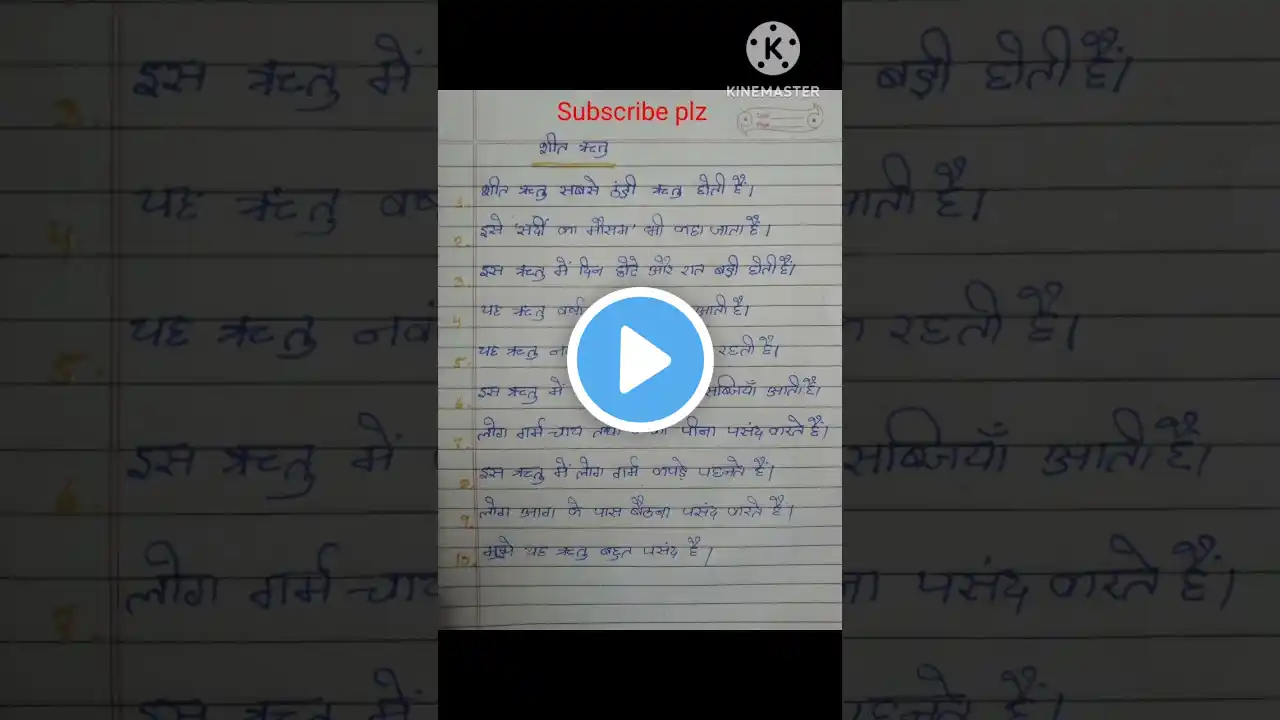 KINEMASTER
Subscribe plz
शीत ऋतु
1. शीत ऋतु सबसे ठंडी ऋतु होती है।
2. इसे 'सर्दी का मौसम' भी कहा जाता है।
3. इस ऋतु में दिन छोटे और रात बड़ी होती है।
4. यह ऋतु वर्षा आती है।
5. यह ऋतु रहती है।
6. इस ऋतु में सब्जियाँ आती है।
7. लोग गर्म चाय तथा पीना पसंद करते है।
8. इस ऋतु में लोग गर्म कपड़े पहनते हैं।
9. लोग आग के पास बैठना पसंद करते है।
10. मुझे यह ऋतु बहुत पसंद है।